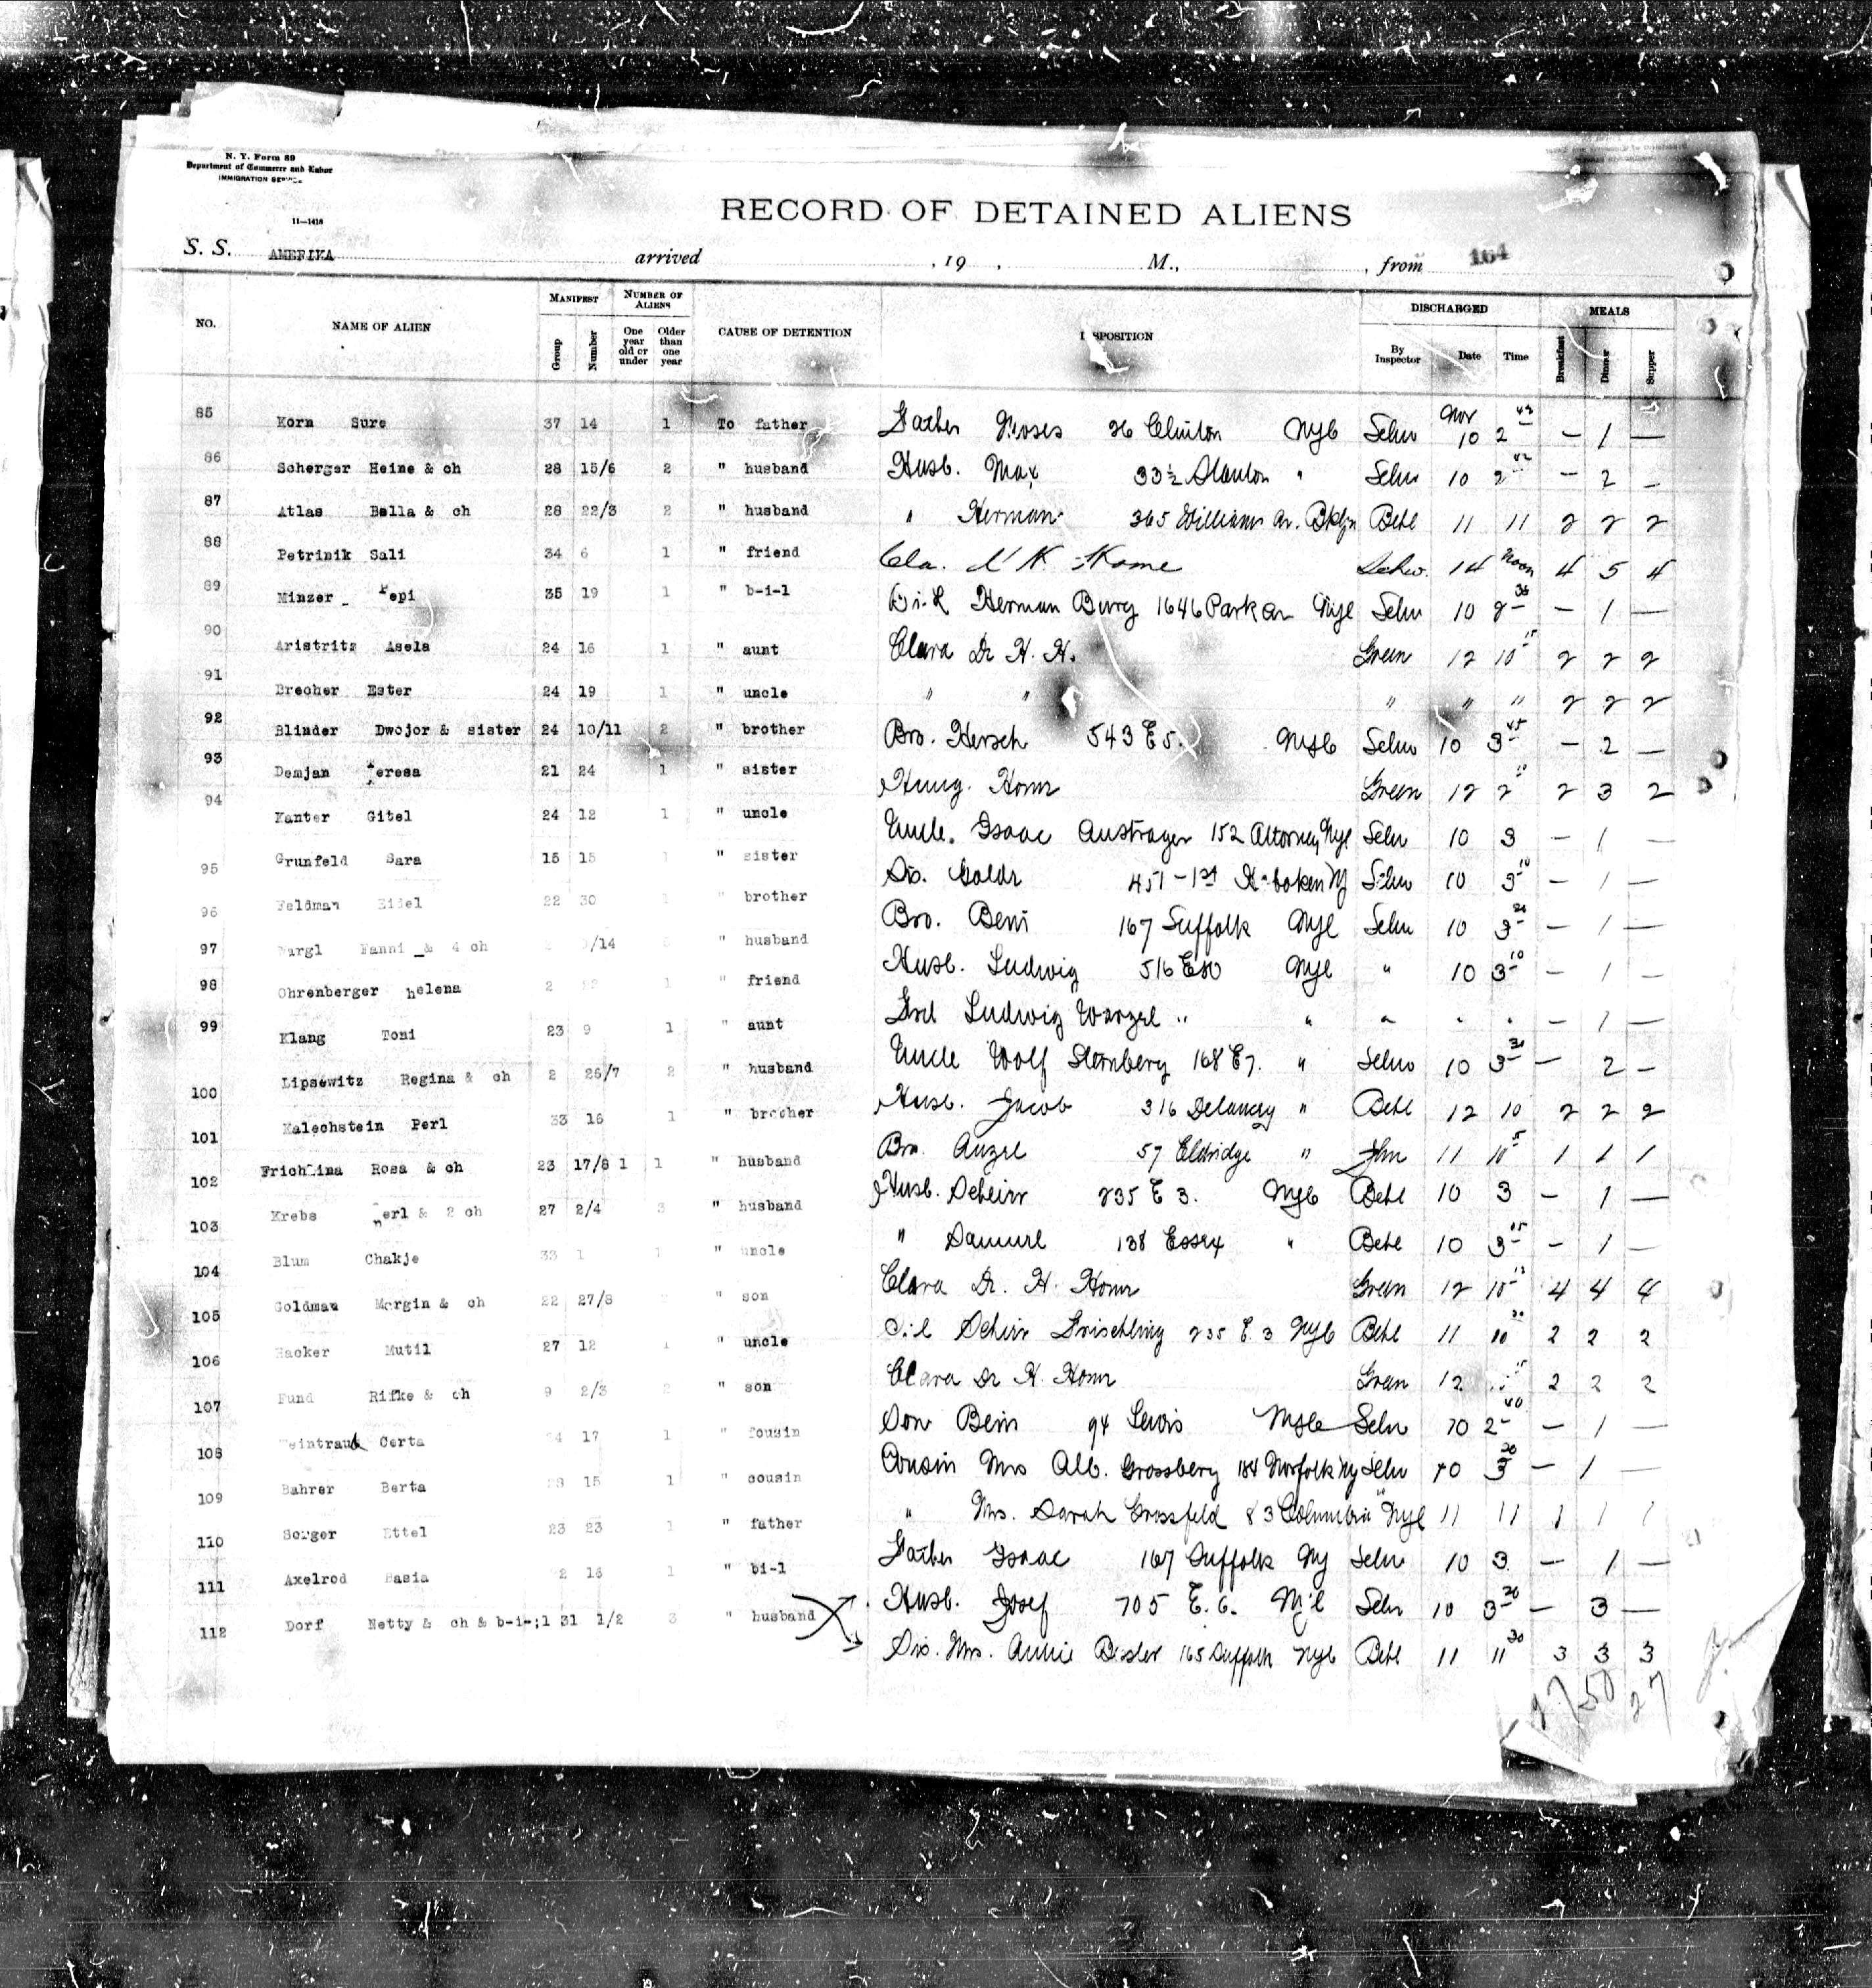 N. Y. Form 89
Department of Commerce and Labor
IMMIGRATION SERVICE
11—1418
RECORD OF DETAINED ALIENS
S. S. AMERIKA arrived , 19 , M., , from 164
NO. NAME OF ALIEN MANIFEST Group Number NUMBER OF ALIENS One year old or under Older than one year CAUSE OF DETENTION DISPOSITION DISCHARGED By Inspector Date Time MEALS Breakfast Dinner Supper
85 Korn Sure 37 14 1 To father Father Moses 26 Clinton NYC Schw Nov 10 2 — 1 —
86 Scherger Heine & ch 28 15/6 2 " husband Husb. Max 33½ Stanton " Schw 10 2 — 2 —
87 Atlas Bella & ch 28 22/3 2 " husband " Herman 365 Williams Av. Bklyn Betl 11 11 2 2 2
88 Petrinik Sali 34 6 1 " friend Cla. Home Schw. 14 Noon 4 5 4
89 Minzer Pepi 35 19 1 " b-i-l Herman Burg 1646 Park av NYC Schw 10 2 — 1 —
90 Aristritz Asela 24 16 1 " aunt Clara De H. H. Green 12 10 15 2 2 2
91 Brecher Ester 24 19 1 " uncle " " " " " 2 2 2
92 Blinder Dwojor & sister 24 10/11 2 " brother Bro. Hersch 543 E 5. NYC Schw 10 3 45 — 2 —
93 Demjan Teresa 21 24 1 " sister Hung. Home Green 12 2 2 3 2
94 Kanter Gitel 24 12 1 " uncle Uncle. Isaac Austrager 152 Attorney NYC Schw 10 3 — 1 —
Grunfeld Sara 15 15 1 " sister Sis. 451 - 1st Hoboken NJ Schw 10 3 10 — 1 —
95 Feldman Eidel 22 30 1 " brother Bro. Beni 167 Suffolk NYC Schw 10 3 — 1 —
96 Fanni & 4 ch /14 " husband Husb. Ludwig 516 NYC " 10 3 10 — 1 —
97 Ohrenberger Helena 2 1 " friend Frd Ludwig " " " " " — 1 —
98 Klang Toni 23 9 1 " aunt Uncle Wolf Sternberg 168 E 7. " Schw 10 3 — 2 —
99 Lipsewitz Regina & ch 2 26/7 2 " husband Husb. Jacob 316 Delancey " Betl 12 10 2 2 2
100 Kalechstein Perl 33 16 1 " brother Bro. Anzel 57 Eldridge " 11 10 5 1 1 1
101 Rosa & ch 23 17/8 1 1 " husband Husb. 235 E 3. NYC Betl 10 3 — 1 —
102 Krebs Perl & 2 ch 27 2/4 3 " husband " Samuel 138 Essex " Betl 10 3 — 1 —
103 Blum Chakje 33 1 1 " uncle Clara De H. Home Green 12 10 4 4 4
104 Goldman Mergin & ch 22 27/8 " son 235 E 3 NYC Betl 11 10 2 2 2
105 Hacker Mutil 27 12 1 " uncle Clara De H. Home Green 12 2 2 2
106 Fund Rifke & ch 9 2/3 2 " son Son Beni 94 Lewis NYC Schw 10 2 40 — 1 —
107 Weintraub Certa 24 17 1 " cousin Cousin Mrs Alb. Grossberg 184 Norfolk NY Schw 10 3 — 1 —
108 Bahrer Berta 15 1 " cousin " Mrs. Sarah Grossfeld 83 Columbia NYC 11 11 1 1 1
109 Sorger Ettel 23 23 1 " father Father Isaac 167 Suffolk NY Schw 10 3 — 1 —
110 Axelrod Basia 2 16 1 " bi-l Husb. Josef 705 E. 6. NYC Schw 10 3 — 3 —
111 Dorf Netty & ch & b-i-;l 31 1/2 3 " husband Sis. Mrs. Annie 165 Suffolk NYC Betl 11 11 30 3 3 3
112
27 50 27